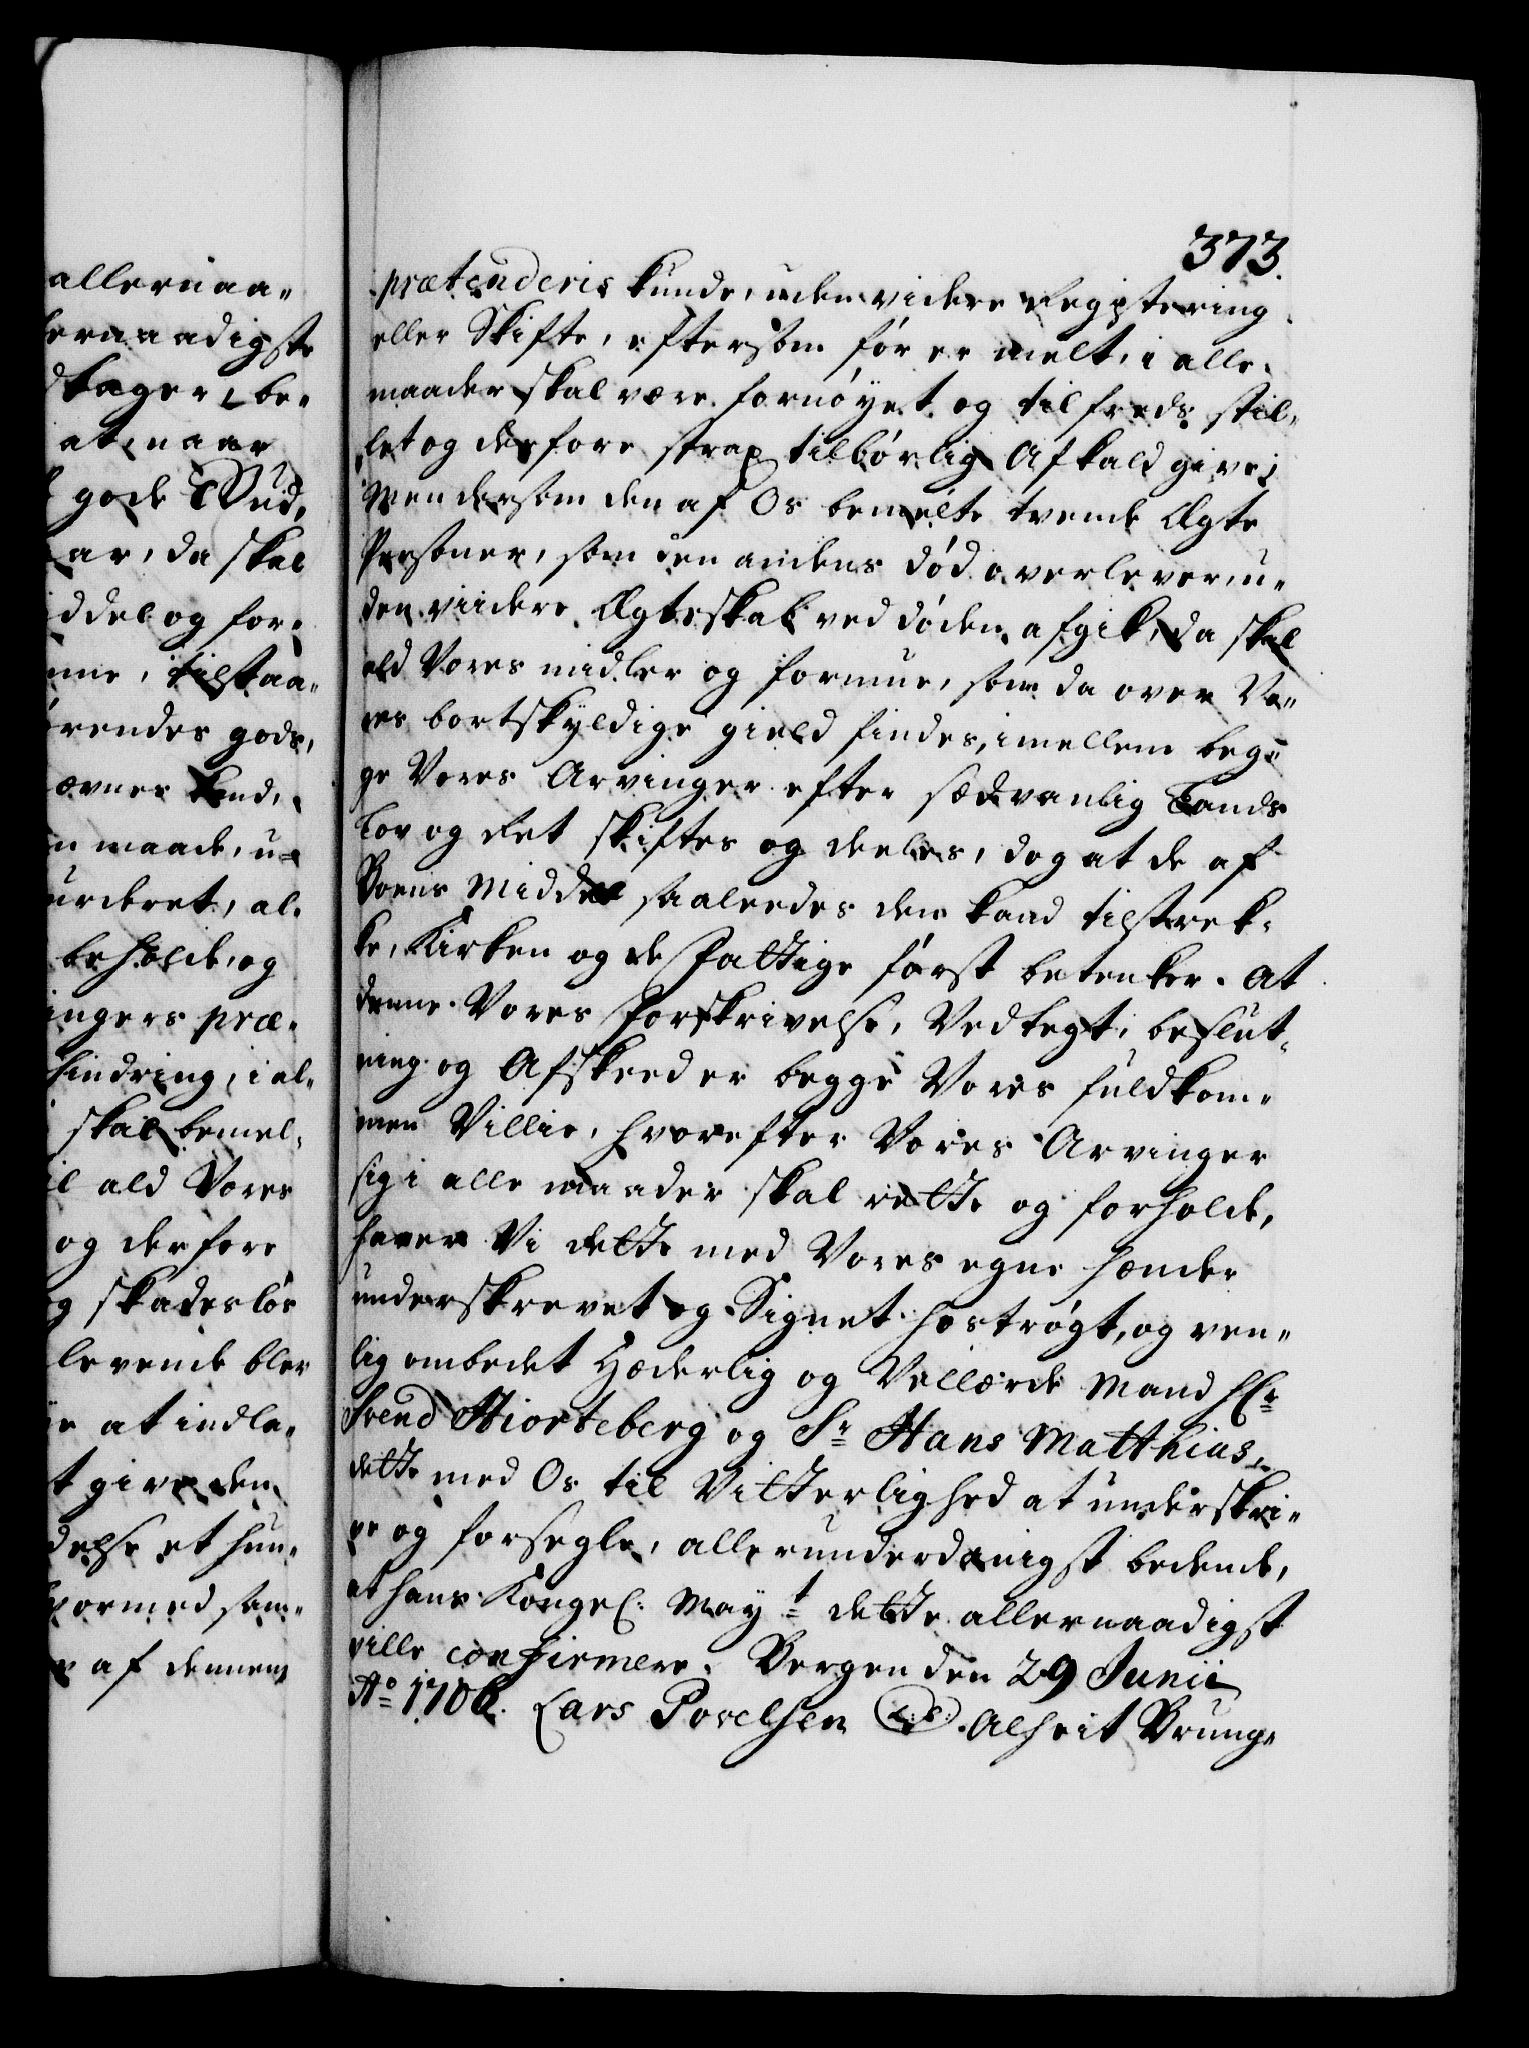 allernaa-
lernaadigste
dtager, be-
at naar
gode Gud,
ar, da skal
iddel og for-
nne, tilstaa-
ørendes gods,
nævnes kand,
n maade, u-
urderet, al-
beholde, og
ingers præ-
hindring, i al-
skal bemel-
il ald Vores
og derfore
og skadesløs
levende bler
at indla-
t give den
delse et hun-
hvormed sam-
af dennem
373.
prætenderis kunde, uden videre Registering
eller Skifte, eftersom før er melt, i alle
maader skal være fornøyet og tilfreds stil-
let og derfore strax tilbørlig Afkald give;
Men dersom den af Os bemelte tvende Egte
Personer, som den andens død overlever, u-
den viidere Egteskab ved døden afgik, da skal
ald Vores midler og formue, som da over Vo-
res bortskyldige gield findes, imellem beg-
ge Vores Arvinger efter sædvanlig Lands
Lov og Ret skiftes og deeles, dog at de af
Boens Middel saaleedes den kand tilstrek-
ke, Kirken og de Fattige først betenker. At
denne Vores Forskrivelse, Vedtegt, beslut-
ning og Afskeed er begge Vores fuldkom-
men Villie, hvorefter Vores Arvinger
sig i alle maader skal rette og forholde,
haver Vi dette med Vores egne hænder
underskrevet og Signet hostrøgt, og ven-
lig ombedet Hæderlig og Vellærde Mand Hr
Svend Hiorteberg og Sr Hans Matthias,
dette med Os til Vitterlighed at underskri-
ve og forsegle, allerunderdanigst bedende,
at hans Kongel. Mayt dette allernaadigst
ville confirmere. Bergen den 29 Junii
Ao 1706. Lars Povelsen (L.S.) Alheit Brung-